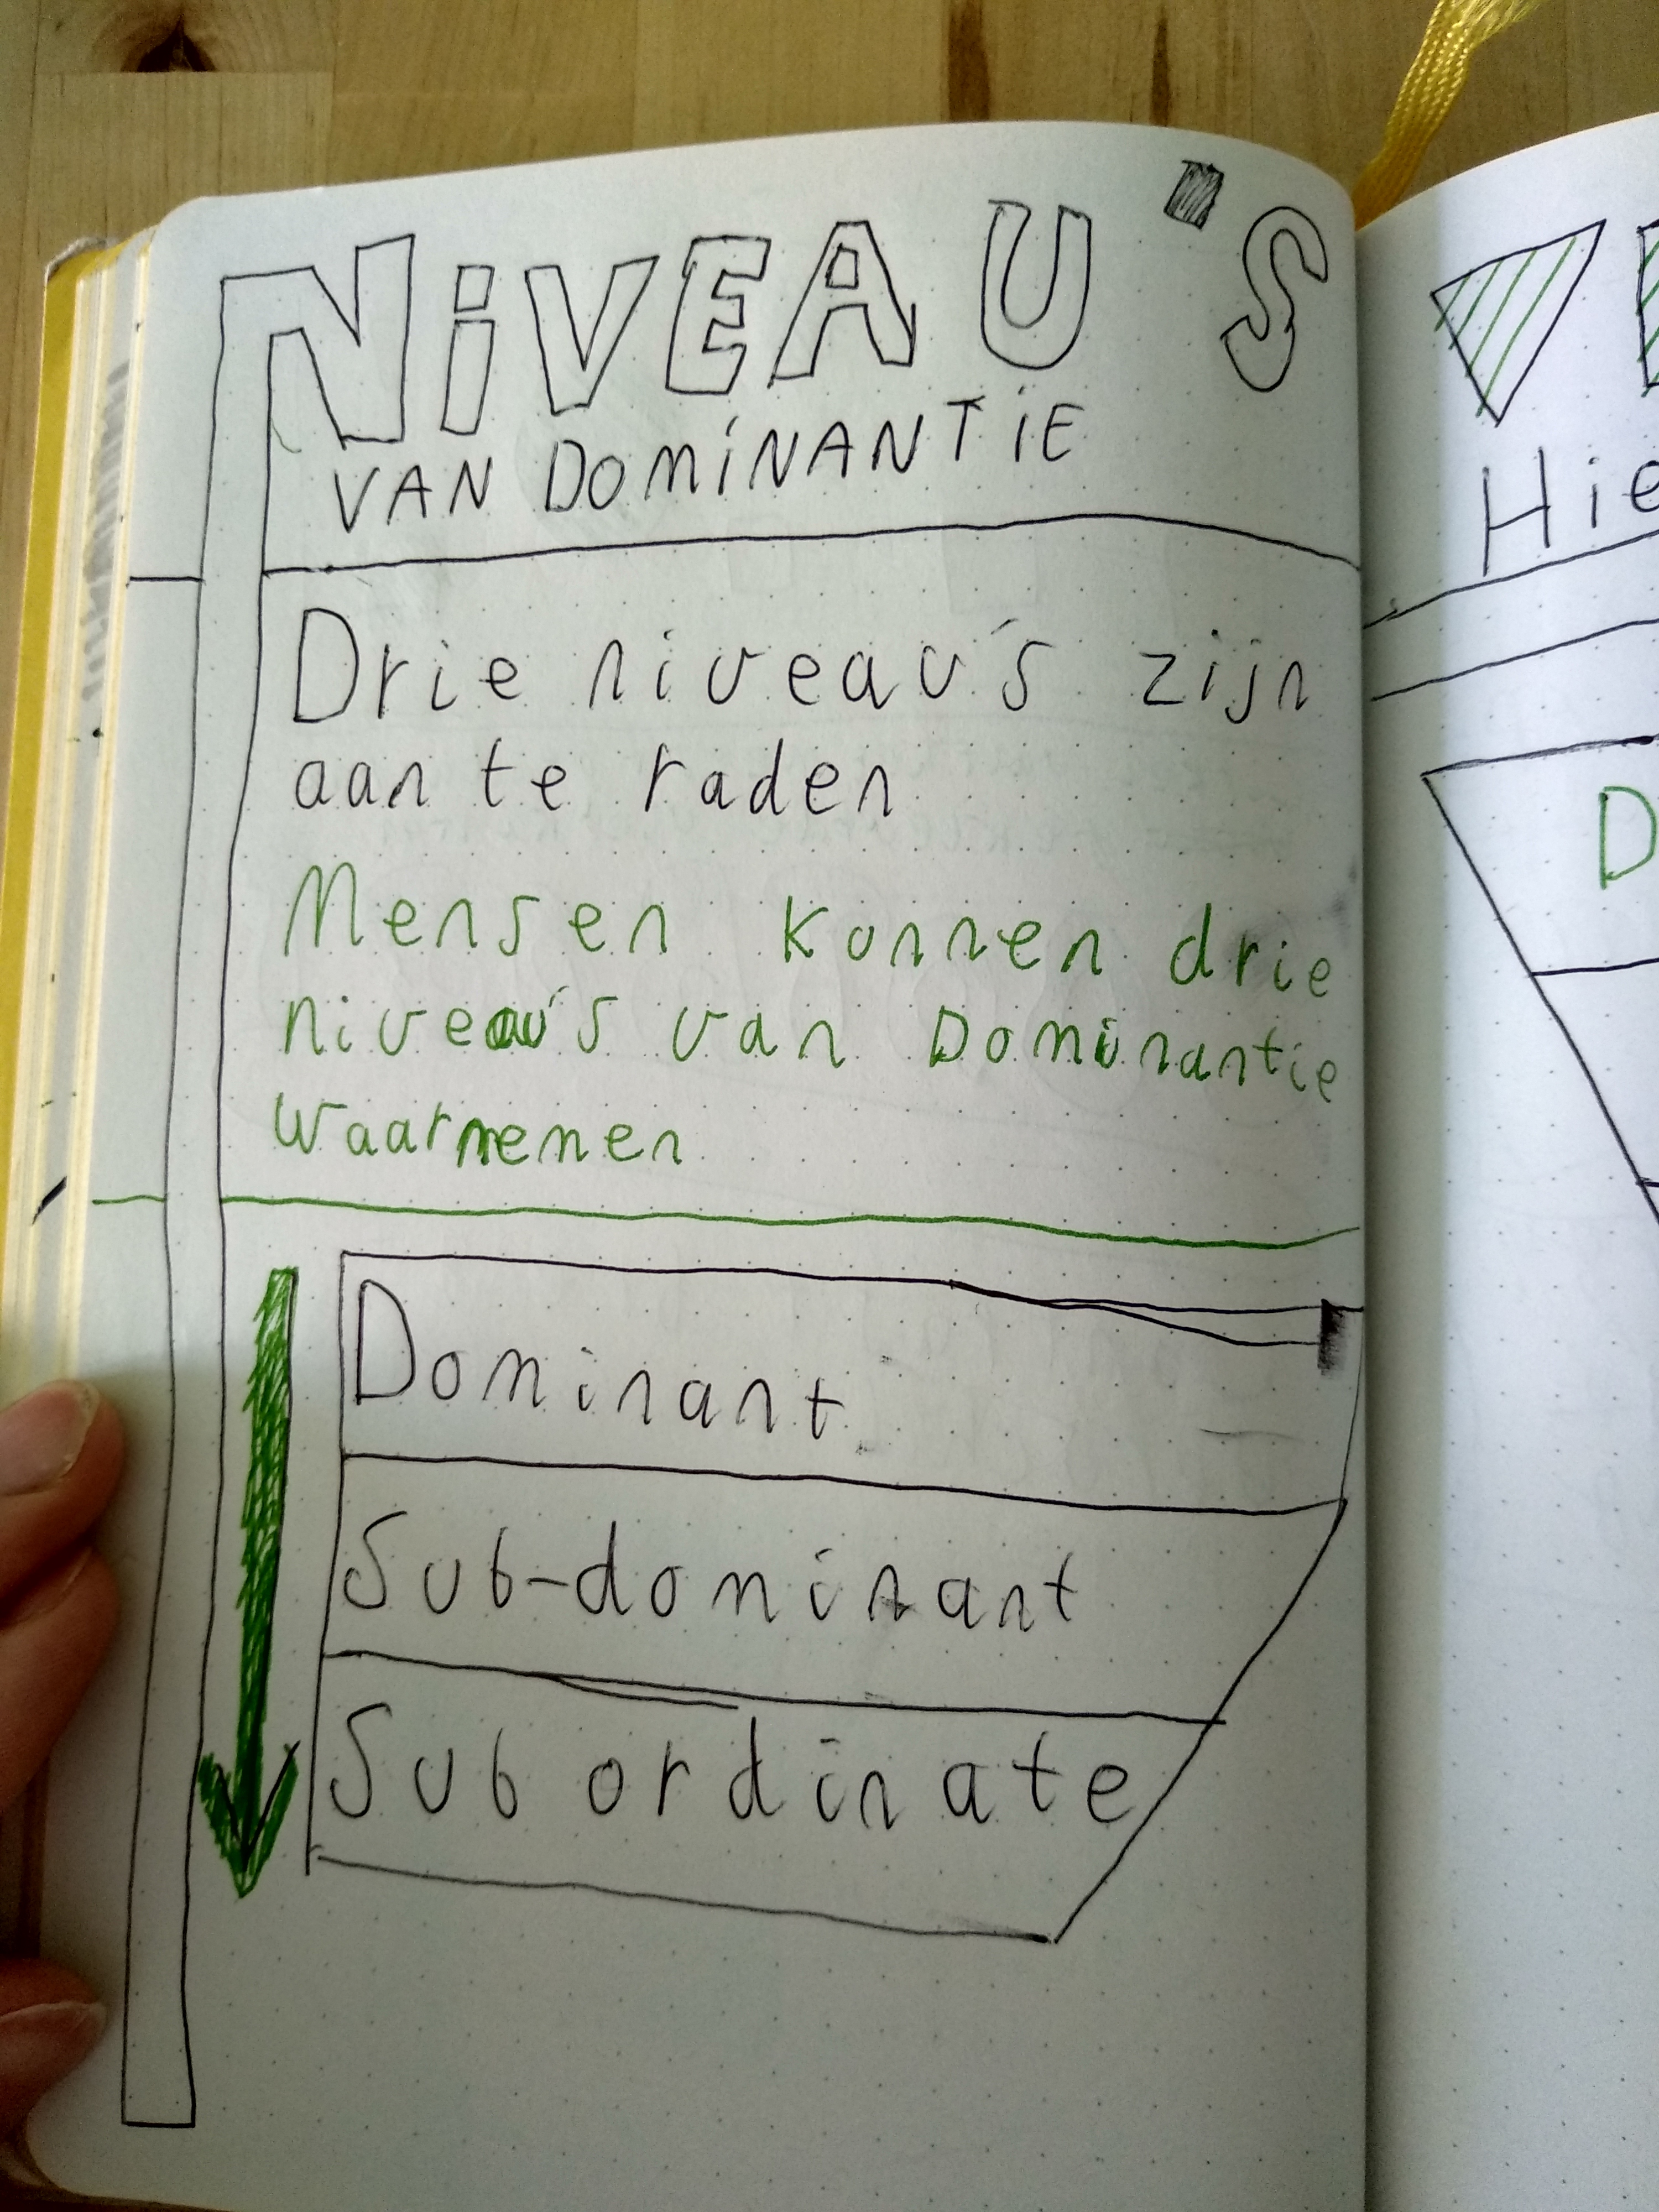 NiVEAU'S
VAN DOMiNANTiE
Drie niveau's zijn
aan te raden
Mensen konnen drie
niveau's van Dominantie
waarnemen
Dominant
Sub-dominant
Subordinate
Hie
D